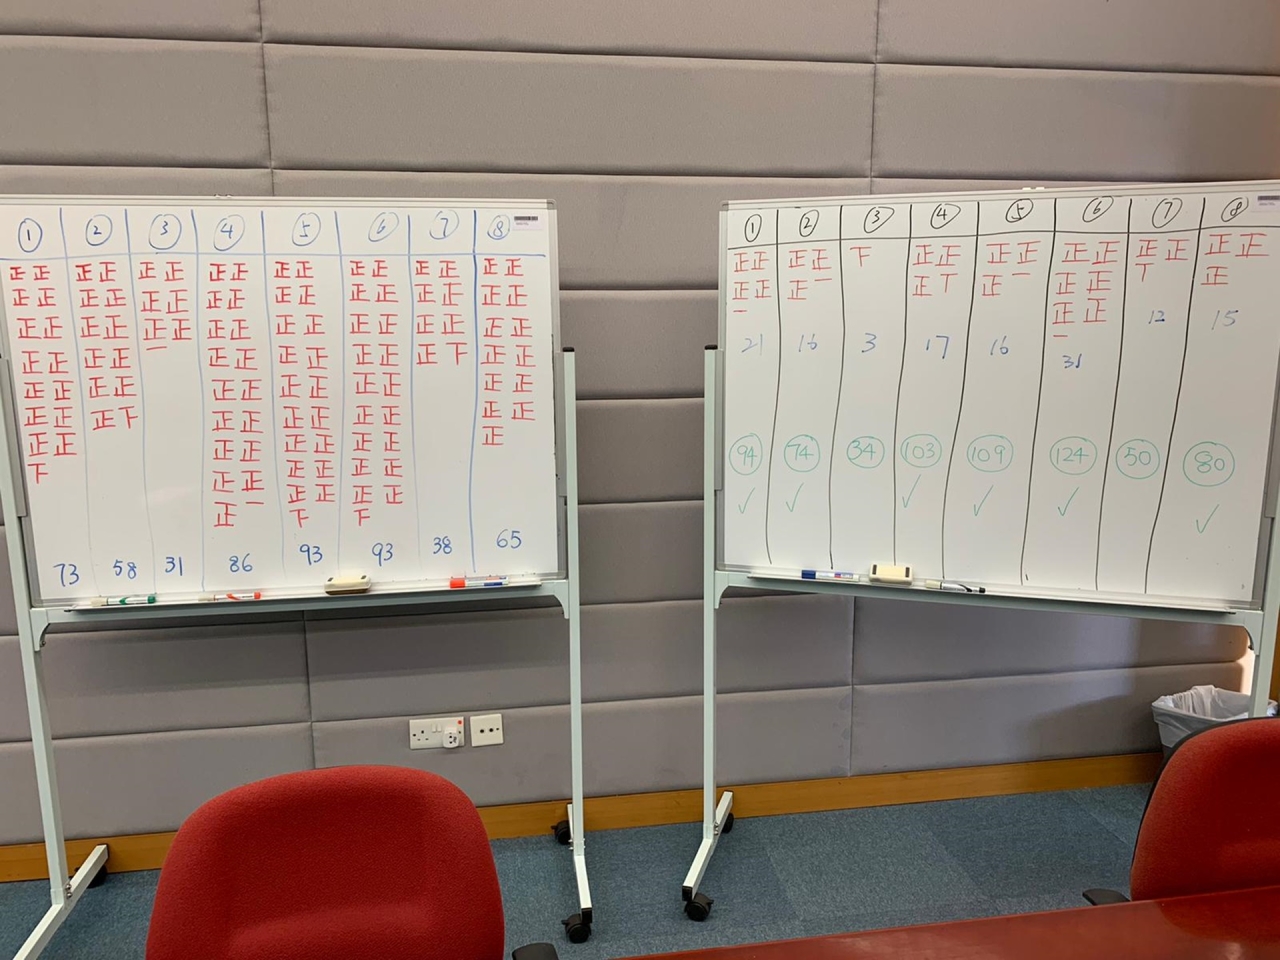 ① ② ③ ④ ⑤ ⑥ ⑦ ⑧
正正 正正 正正 正正 正正 正正 正正 正正
正正 正正 正正 正正 正正 正正 正正 正正
正正 正正 正正 正正 正正 正正 正正 正正
正正 正正 一 正正 正正 正正 正下 正正
正正 正正 正正 正正 正正 正正
正正 正下 正正 正正 正正 正正
正正 正正 正正 正正 正
下 正正 正正 正正
正一 正正 正正
正 下 下
73 58 31 86 93 93 38 65
① ② ③ ④ ⑤ ⑥ ⑦ ⑧
正正 正正 下 正正 正正 正正 正正 正正
正正 正一 正T 正一 正正 T 正
一 正正
一
21 16 3 17 16 31 12 15
94 74 34 103 109 124 50 80
✓ ✓ ✓ ✓ ✓ ✓